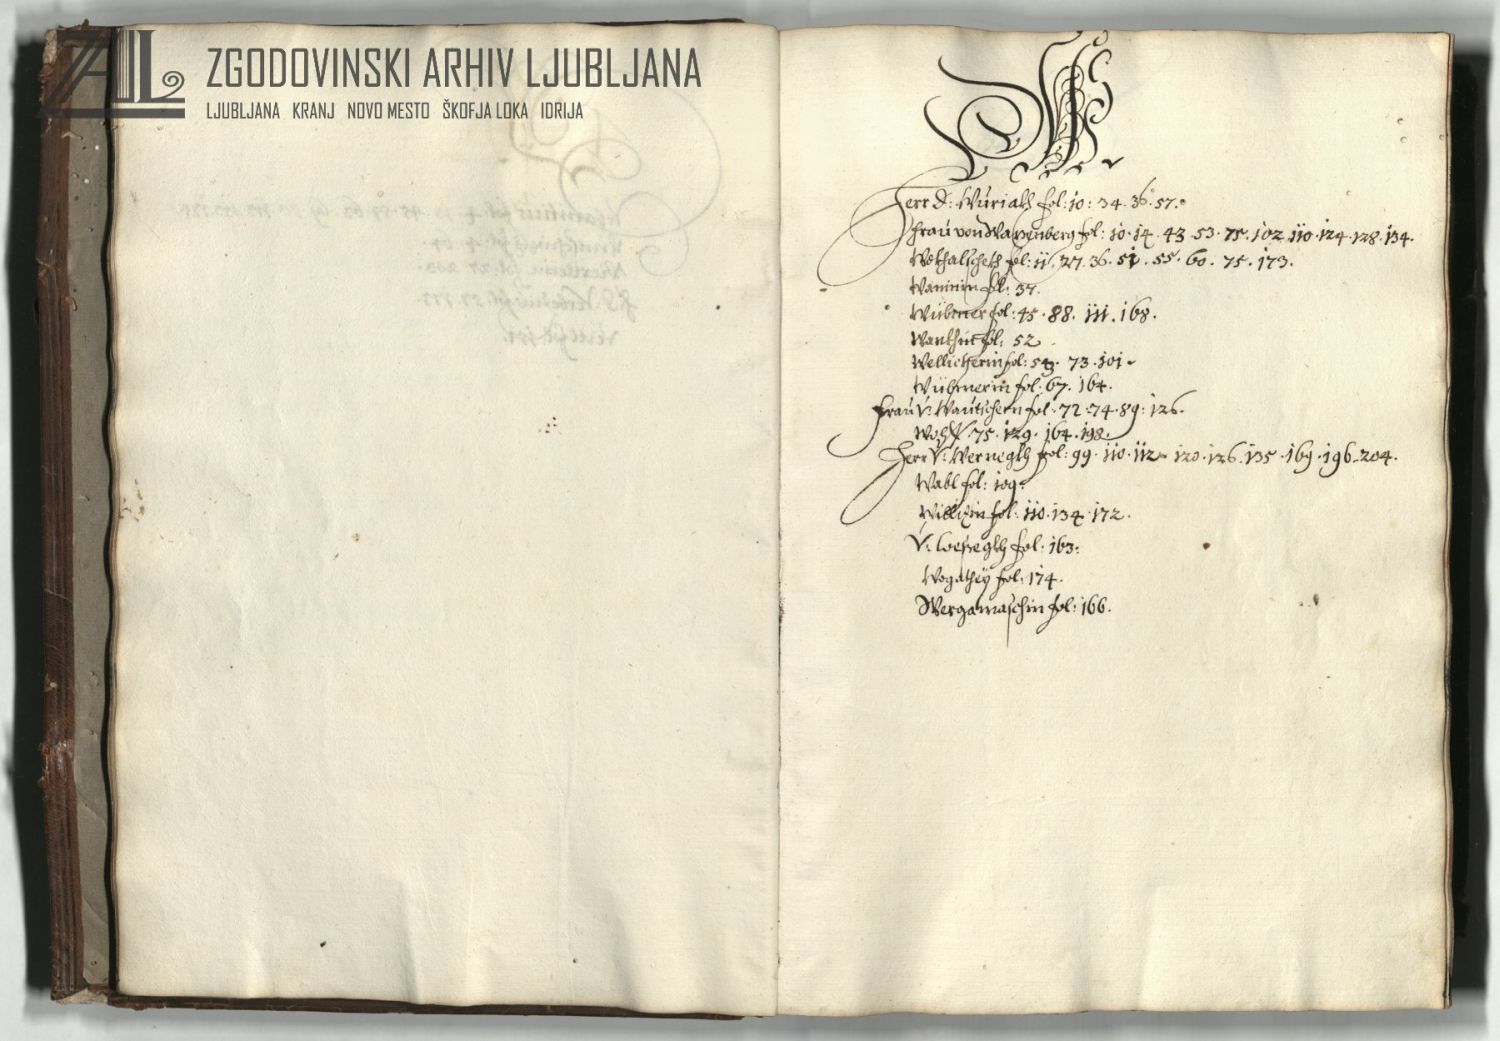 ZGODOVINSKI ARHIV LJUBLJANA
LJUBLJANA KRANJ NOVO MESTO ŠKOFJA LOKA IDRIJA
W
Herr D: Wuriath fol: 10: 34. 36. 57.
Frau von Warenberg fol: 10. 14. 43. 53. 75. 102. 110. 124. 128. 134.
fol: 11. 27. 36. 51. 55. 60. 75. 173.
Waninin fol: 37.
Wübmer fol: 45. 88. 111. 168.
fol: 52.
fol: 73. 101.
Wübmerin fol. 67. 164.
Frau V: Wautschern fol. 72. 74. 89. 126.
75. 129. 164. 198.
Herr V: Wernegkh fol: 99. 110. 112. 120. 126. 135. 169. 196. 204.
Wabl fol: 109.
fol: 110. 134. 172.
V: fol. 163.
Wogathey fol: 174.
Wergamaschin fol: 166.